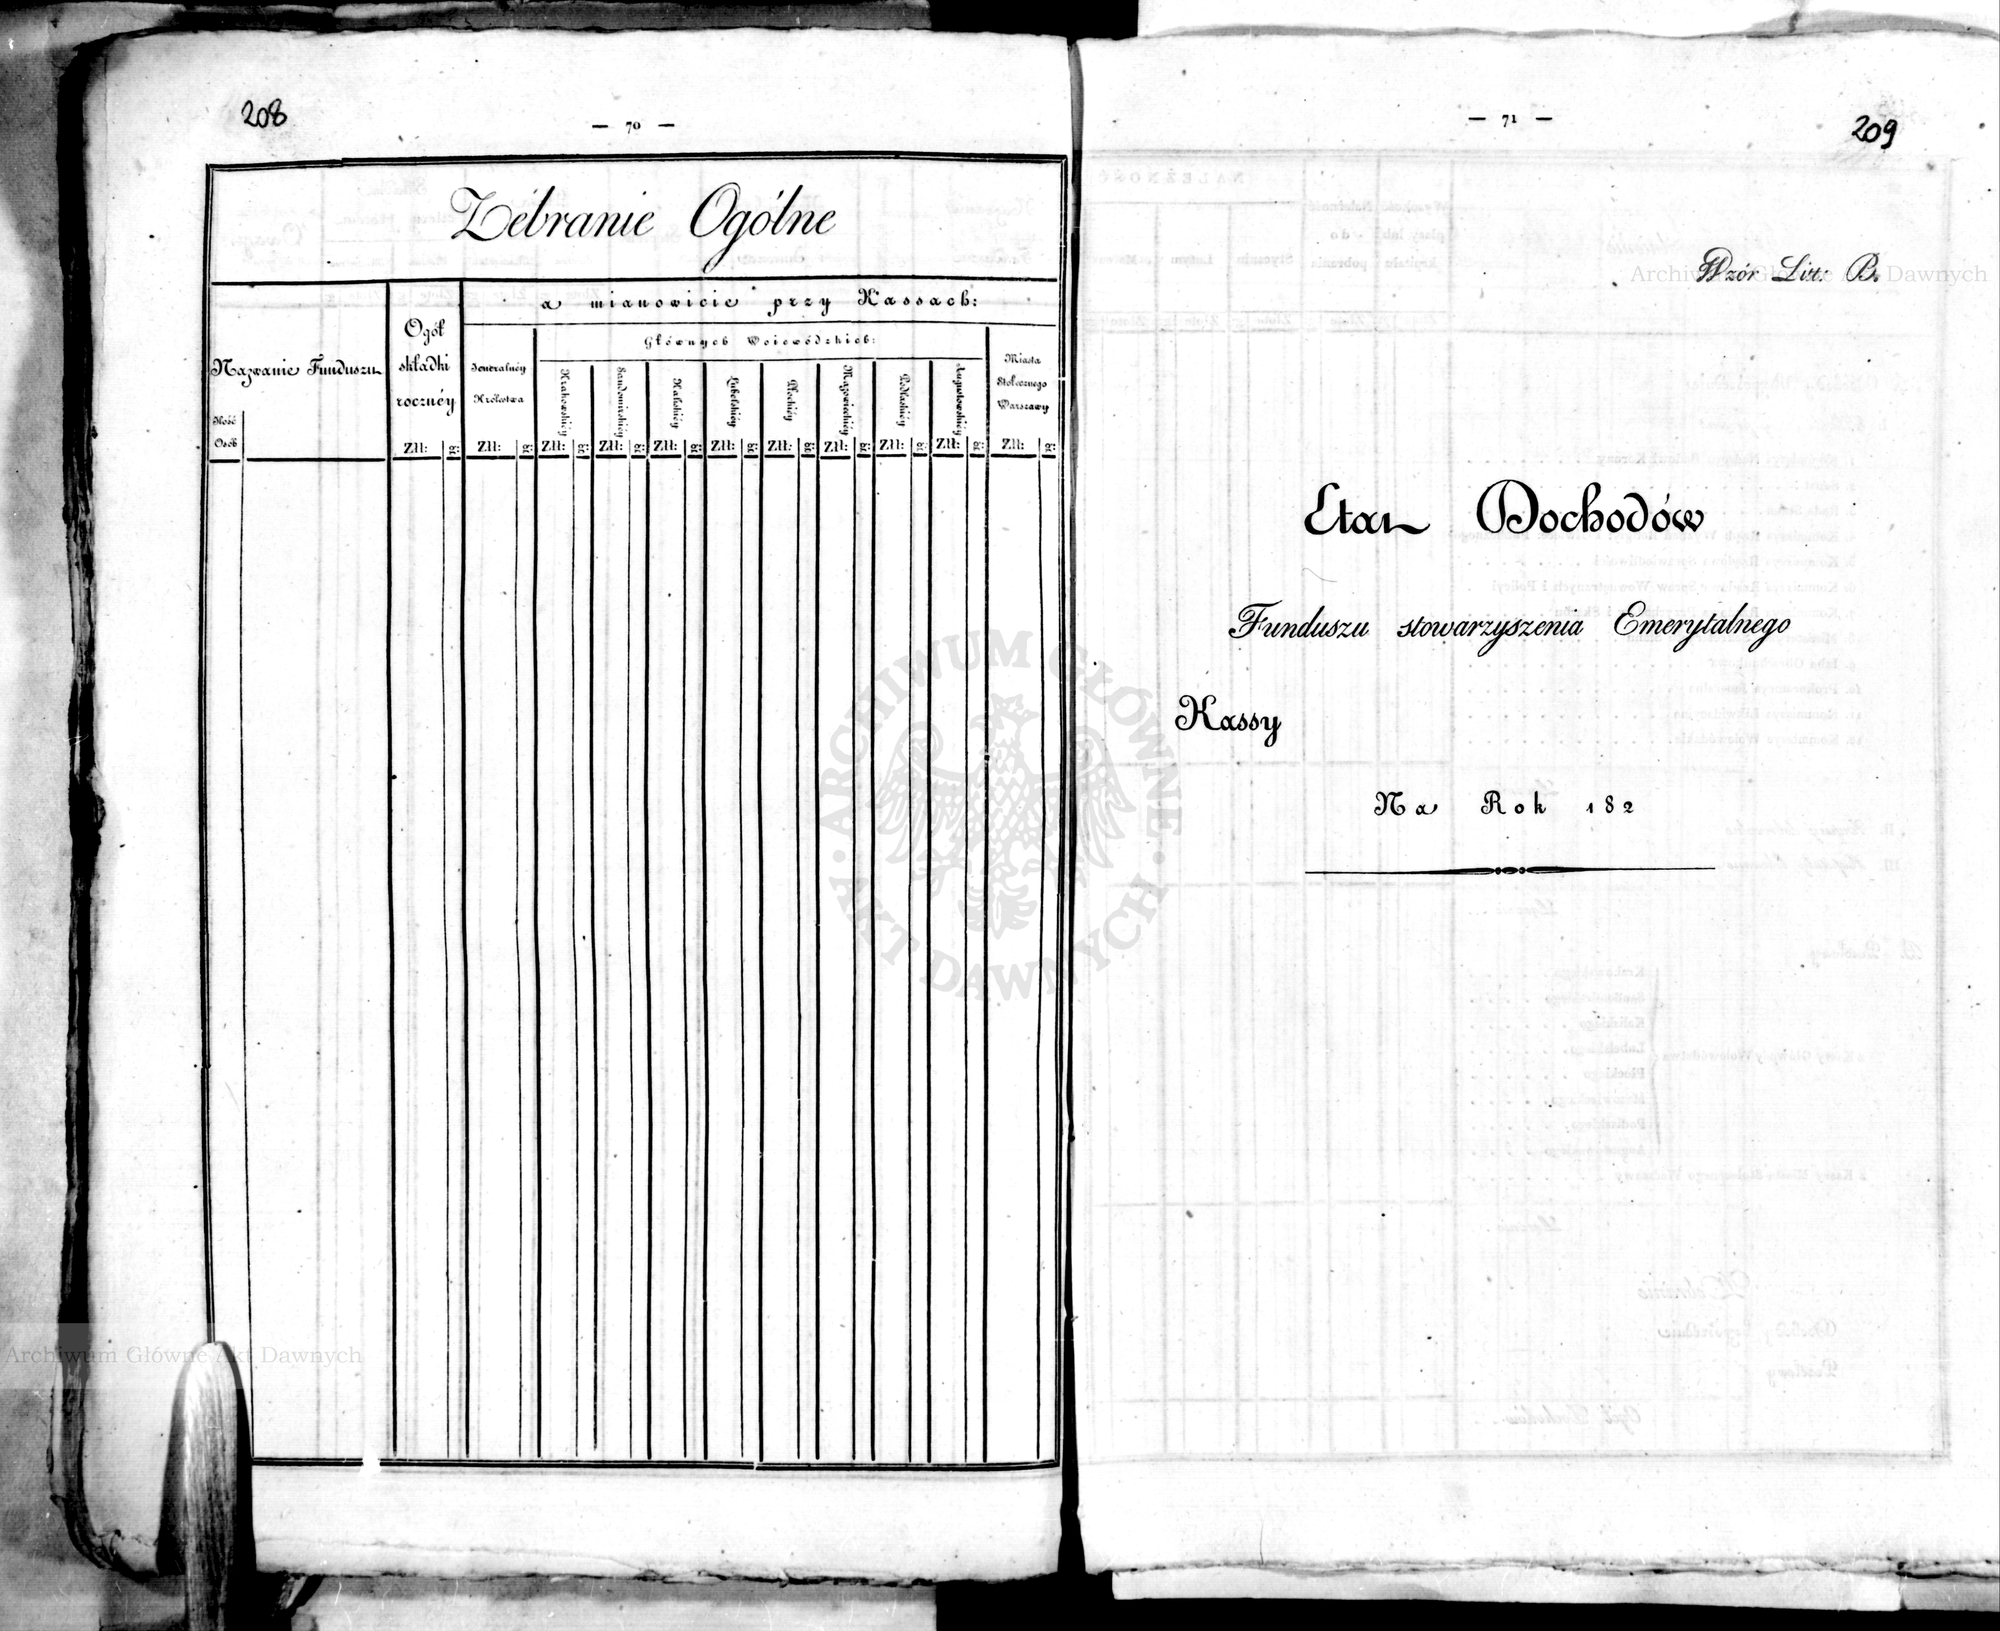 208
— 70 —
Zébranie Ogólne
a mianowicie przy Kassach:
Nazwanie Funduszu
Ilość
Osób
Ogół
składki
rocznéy
Jeneralnéy
Królestwa
Głównych Woiewódzkich:
Krakowskiéy
Sandomirskiéy
Kaliskiéy
Lubelskiéy
Płockiéy
Mazowieckiéy
Podlaskiéy
Augustowskiéy
Miasta
Stołecznego
Warszawy
Złł: gr: Złł: gr: Złł: gr: Złł: gr: Złł: gr: Złł: gr: Złł: gr: Złł: gr: Złł: gr: Złł: gr: Złł: gr:
— 71 —
209
Wzór Litt: B.
Etat Dochodów
Funduszu stowarzyszenia Emerytalnego
Kassy
Na Rok 182
ARCHIWUM GŁÓWNE AKT DAWNYCH
Archiwum Główne Akt Dawnych
Archiwum Główne Akt Dawnych